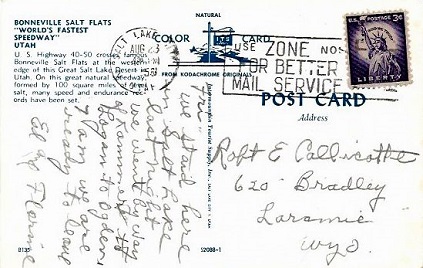 BONNEVILLE SALT FLATS
"WORLD'S FASTEST
SPEEDWAY"
UTAH
U. S. Highway 40-50 crosses famous
Bonneville Salt Flats at the western
edge of this Great Salt Lake Desert in
Utah. On this great natural speedway,
formed by 100 square miles of
salt, many speed and endurance rec-
ords have been set.
NATURAL
COLOR CARD
FROM KODACHROME ORIGINALS
SALT LAKE
AUG 23
USE ZONE NOS.
FOR BETTER
MAIL SERVICE
U.S. POSTAGE 3¢
LIBERTY
POST CARD
Address
Robt E Callicotte
620 Bradley
Laramie
Wyo.
We stand here
last night
in Salt Lake
we went by way
of
Logan to Ogden
I am we are
ready to leave
Florine
B135
S2088-1